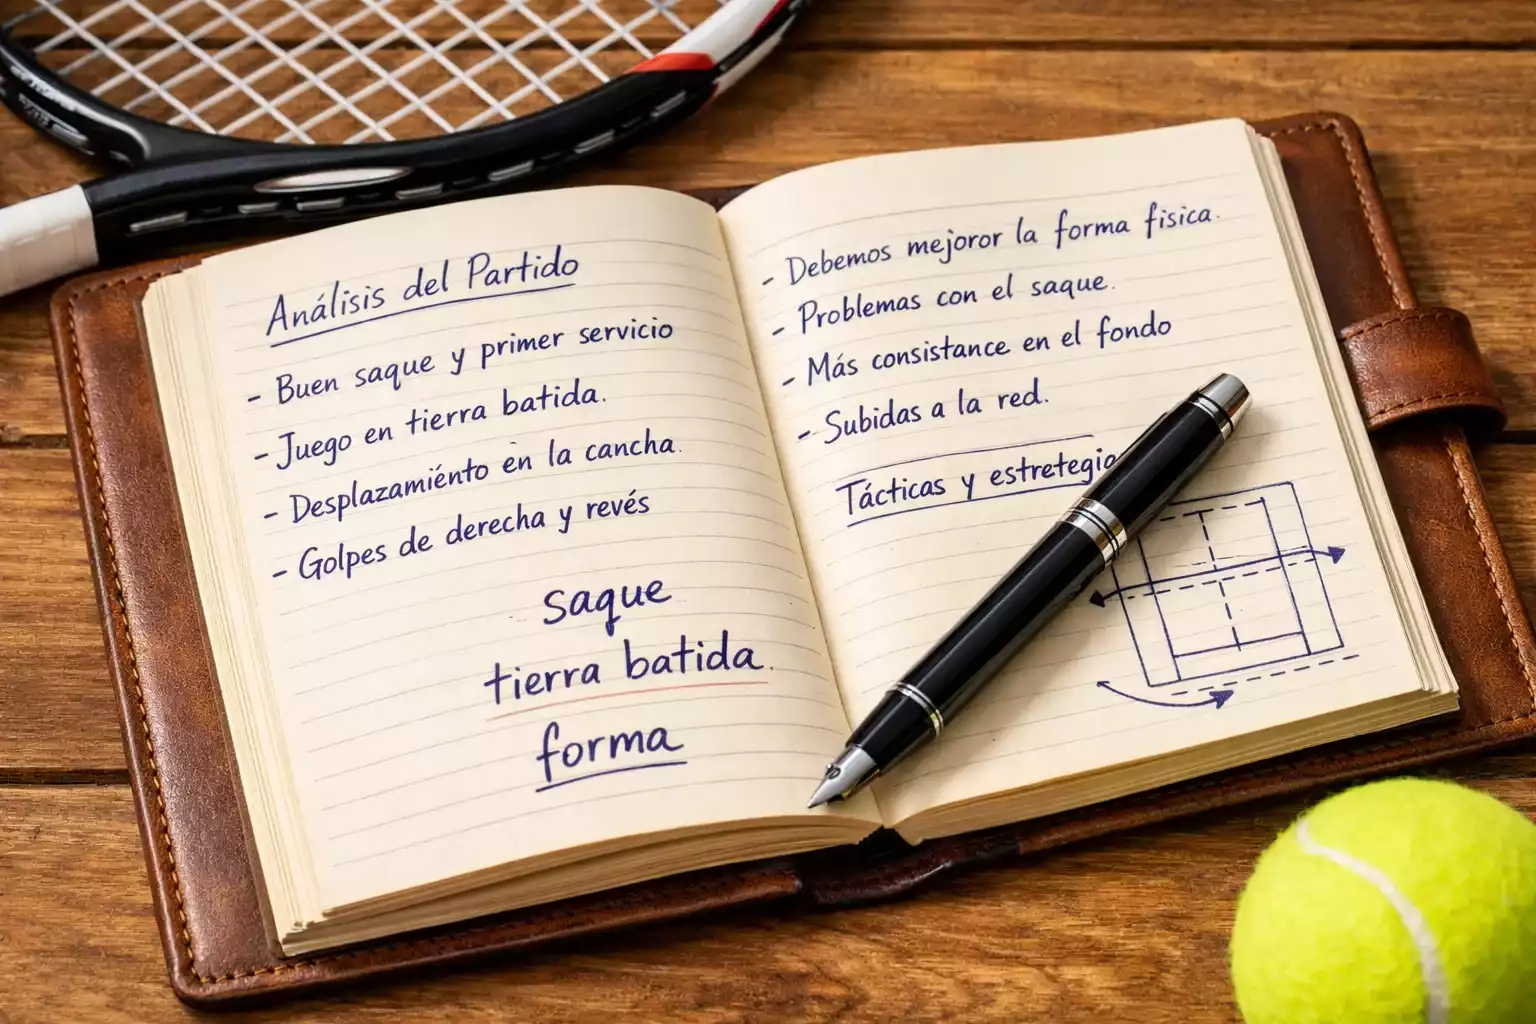 Análisis del Partido
- Buen saque y primer servicio
- Juego en tierra batida.
- Desplazamiénto en la cancha.
- Golpes de derecha y revés
saque
tierra batida.
forma
- Debemos mejoror la forma física.
- Problemas con el saque.
- Más consistance en el fondo
- Subidas a la red.
Tácticas y estretegia